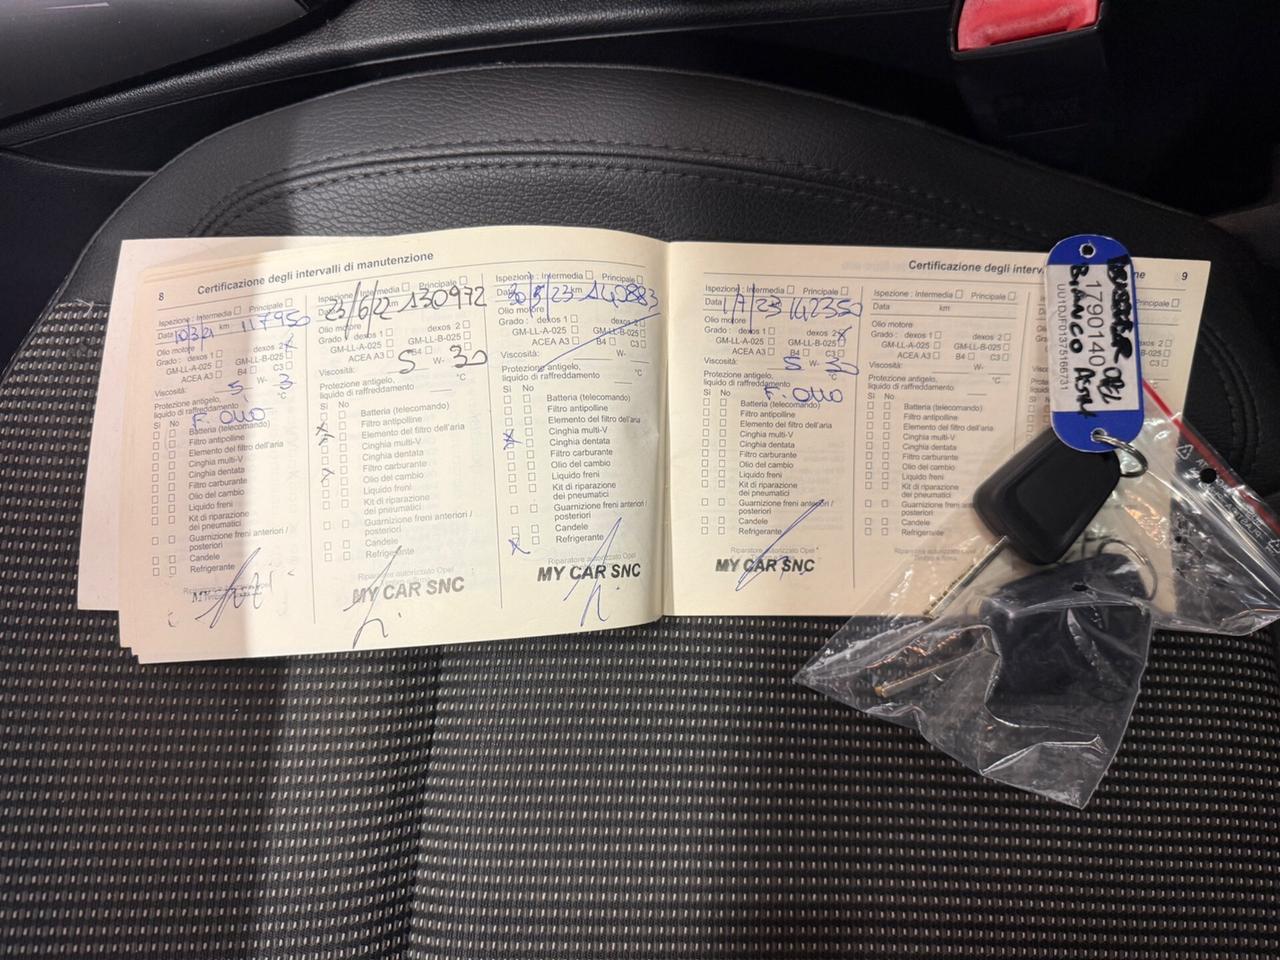 8 Certificazione degli intervalli di manutenzione
Ispezione : Intermedia Principale
Data km 117950
Olio motore
Grado : dexos 1 dexos 2
GM-LL-A-025 GM-LL-B-025
ACEA A3 B4 C3
Viscosità: 5 W- 3
Protezione antigelo, °C
liquido di raffreddamento
Sì No F. OLIO
Batteria (telecomando)
Filtro antipolline
Elemento del filtro dell'aria
Cinghia multi-V
Cinghia dentata
Filtro carburante
Olio del cambio
Liquido freni
Kit di riparazione
dei pneumatici
Guarnizione freni anteriori /
posteriori
Candele
Refrigerante
Ispezione : Intermedia Principale
Data 23/6/22 km 130972
Olio motore
Grado : dexos 1 dexos 2
GM-LL-A-025 GM-LL-B-025
ACEA A3 B4 C3
Viscosità: 5 W- 30
Protezione antigelo, °C
liquido di raffreddamento
Sì No
Batteria (telecomando)
Filtro antipolline
Elemento del filtro dell'aria
Cinghia multi-V
Cinghia dentata
Filtro carburante
Olio del cambio
Liquido freni
Kit di riparazione
dei pneumatici
Guarnizione freni anteriori /
posteriori
Candele
Refrigerante
Riparatore autorizzato Opel
MY CAR SNC
Ispezione : Intermedia Principale
Data km 140883
Olio motore
Grado : dexos 1 dexos 2
GM-LL-A-025 GM-LL-B-025
ACEA A3 B4 C3
Viscosità: W-
Protezione antigelo, °C
liquido di raffreddamento
Sì No
Batteria (telecomando)
Filtro antipolline
Elemento del filtro dell'aria
Cinghia multi-V
Cinghia dentata
Filtro carburante
Olio del cambio
Liquido freni
Kit di riparazione
dei pneumatici
Guarnizione freni anteriori /
posteriori
Candele
Refrigerante
Riparatore autorizzato Opel
MY CAR SNC
Certificazione degli 9
Ispezione : Intermedia Principale
Data km 142350
Olio motore
Grado : dexos 1 dexos 2
GM-LL-A-025 GM-LL-B-025
ACEA A3 B4 C3
Viscosità: 5 W- 30
Protezione antigelo, °C
liquido di raffreddamento
Sì No F. OLIO
Batteria (telecomando)
Filtro antipolline
Elemento del filtro dell'aria
Cinghia multi-V
Cinghia dentata
Filtro carburante
Olio del cambio
Liquido freni
Kit di riparazione
dei pneumatici
Guarnizione freni anteriori /
posteriori
Candele
Refrigerante
Riparatore autorizzato Opel
MY CAR SNC
Ispezione : Intermedia Principale
Data km
Olio motore
Grado : dexos 1 dexos 2
GM-LL-A-025 GM-LL-B-025
ACEA A3 B4 C3
Viscosità: W-
Protezione antigelo, °C
liquido di raffreddamento
Sì No
Batteria (telecomando)
Filtro antipolline
Elemento del filtro dell'aria
Cinghia multi-V
Cinghia dentata
Filtro carburante
Olio del cambio
Liquido freni
Kit di riparazione
dei pneumatici
Guarnizione freni
posteriori
Candele
Refrigerante
OPEL ASTRA
1790140
BIANCO